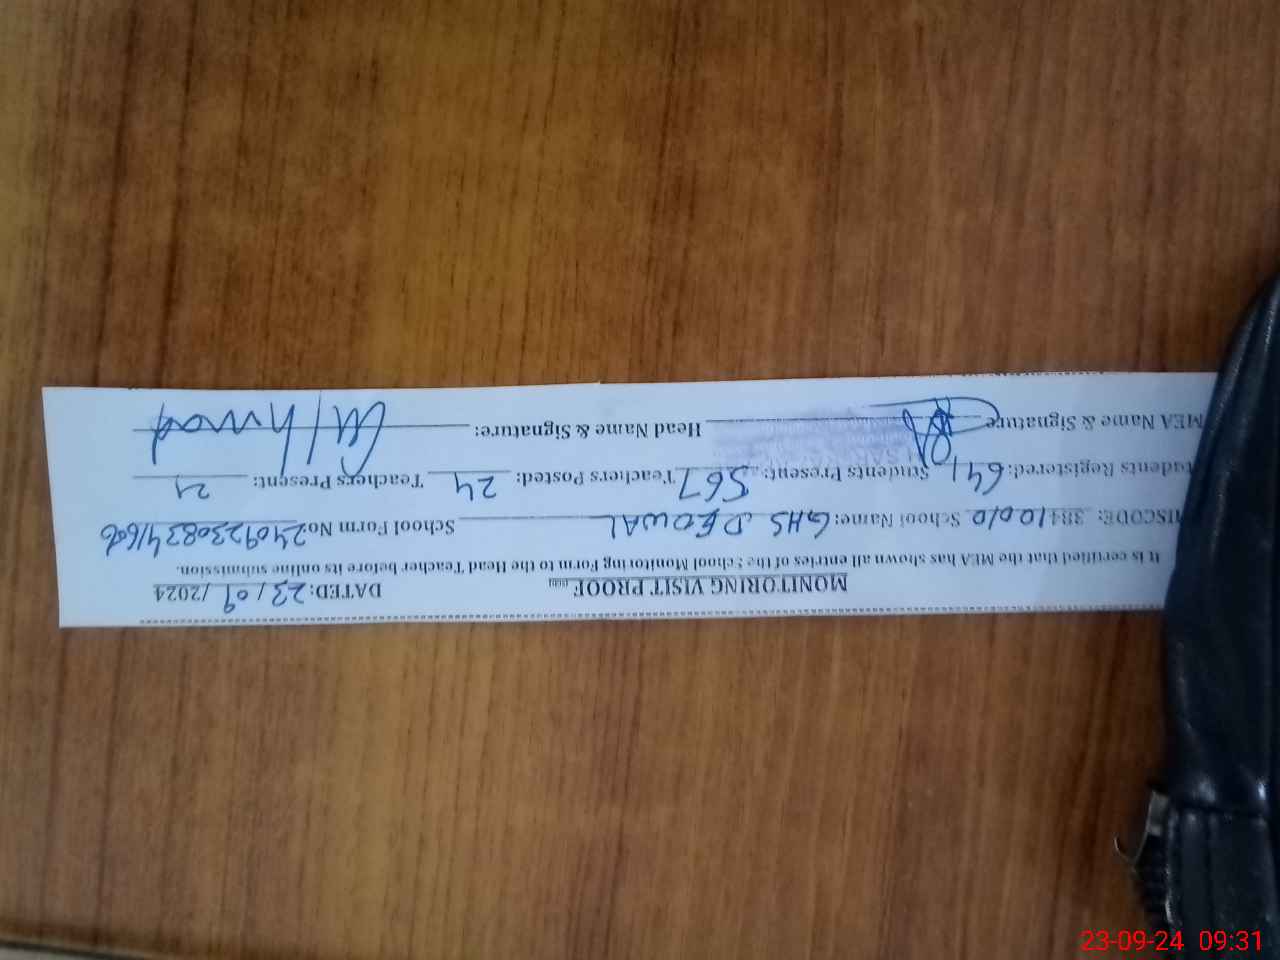 MONITORING VISIT PROOF DATED: 23/09/2024
It is certified that the MEA has shown all entries of the School Monitoring Form to the Head Teacher before its online submission.
MISCODE: 38410010 School Name: GHS DEOWAL School Form No
Students Registered: 641 Students Present: 567 Teachers Posted: 24 Teachers Present: 21
MEA Name & Signature Head Name & Signature:
23-09-24 09:31